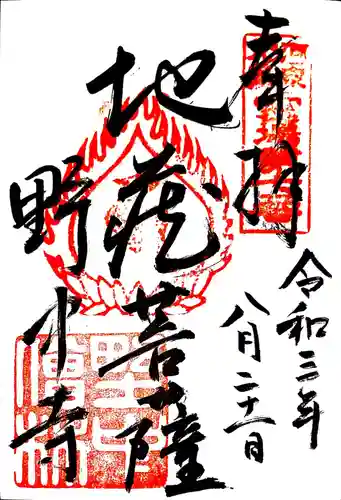 奉拝
令和三年
八月二十一日
地蔵菩薩
野中寺